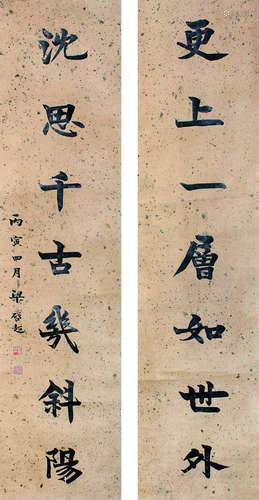 更上一層如世外
沈思千古幾斜陽
丙寅四月梁啓超